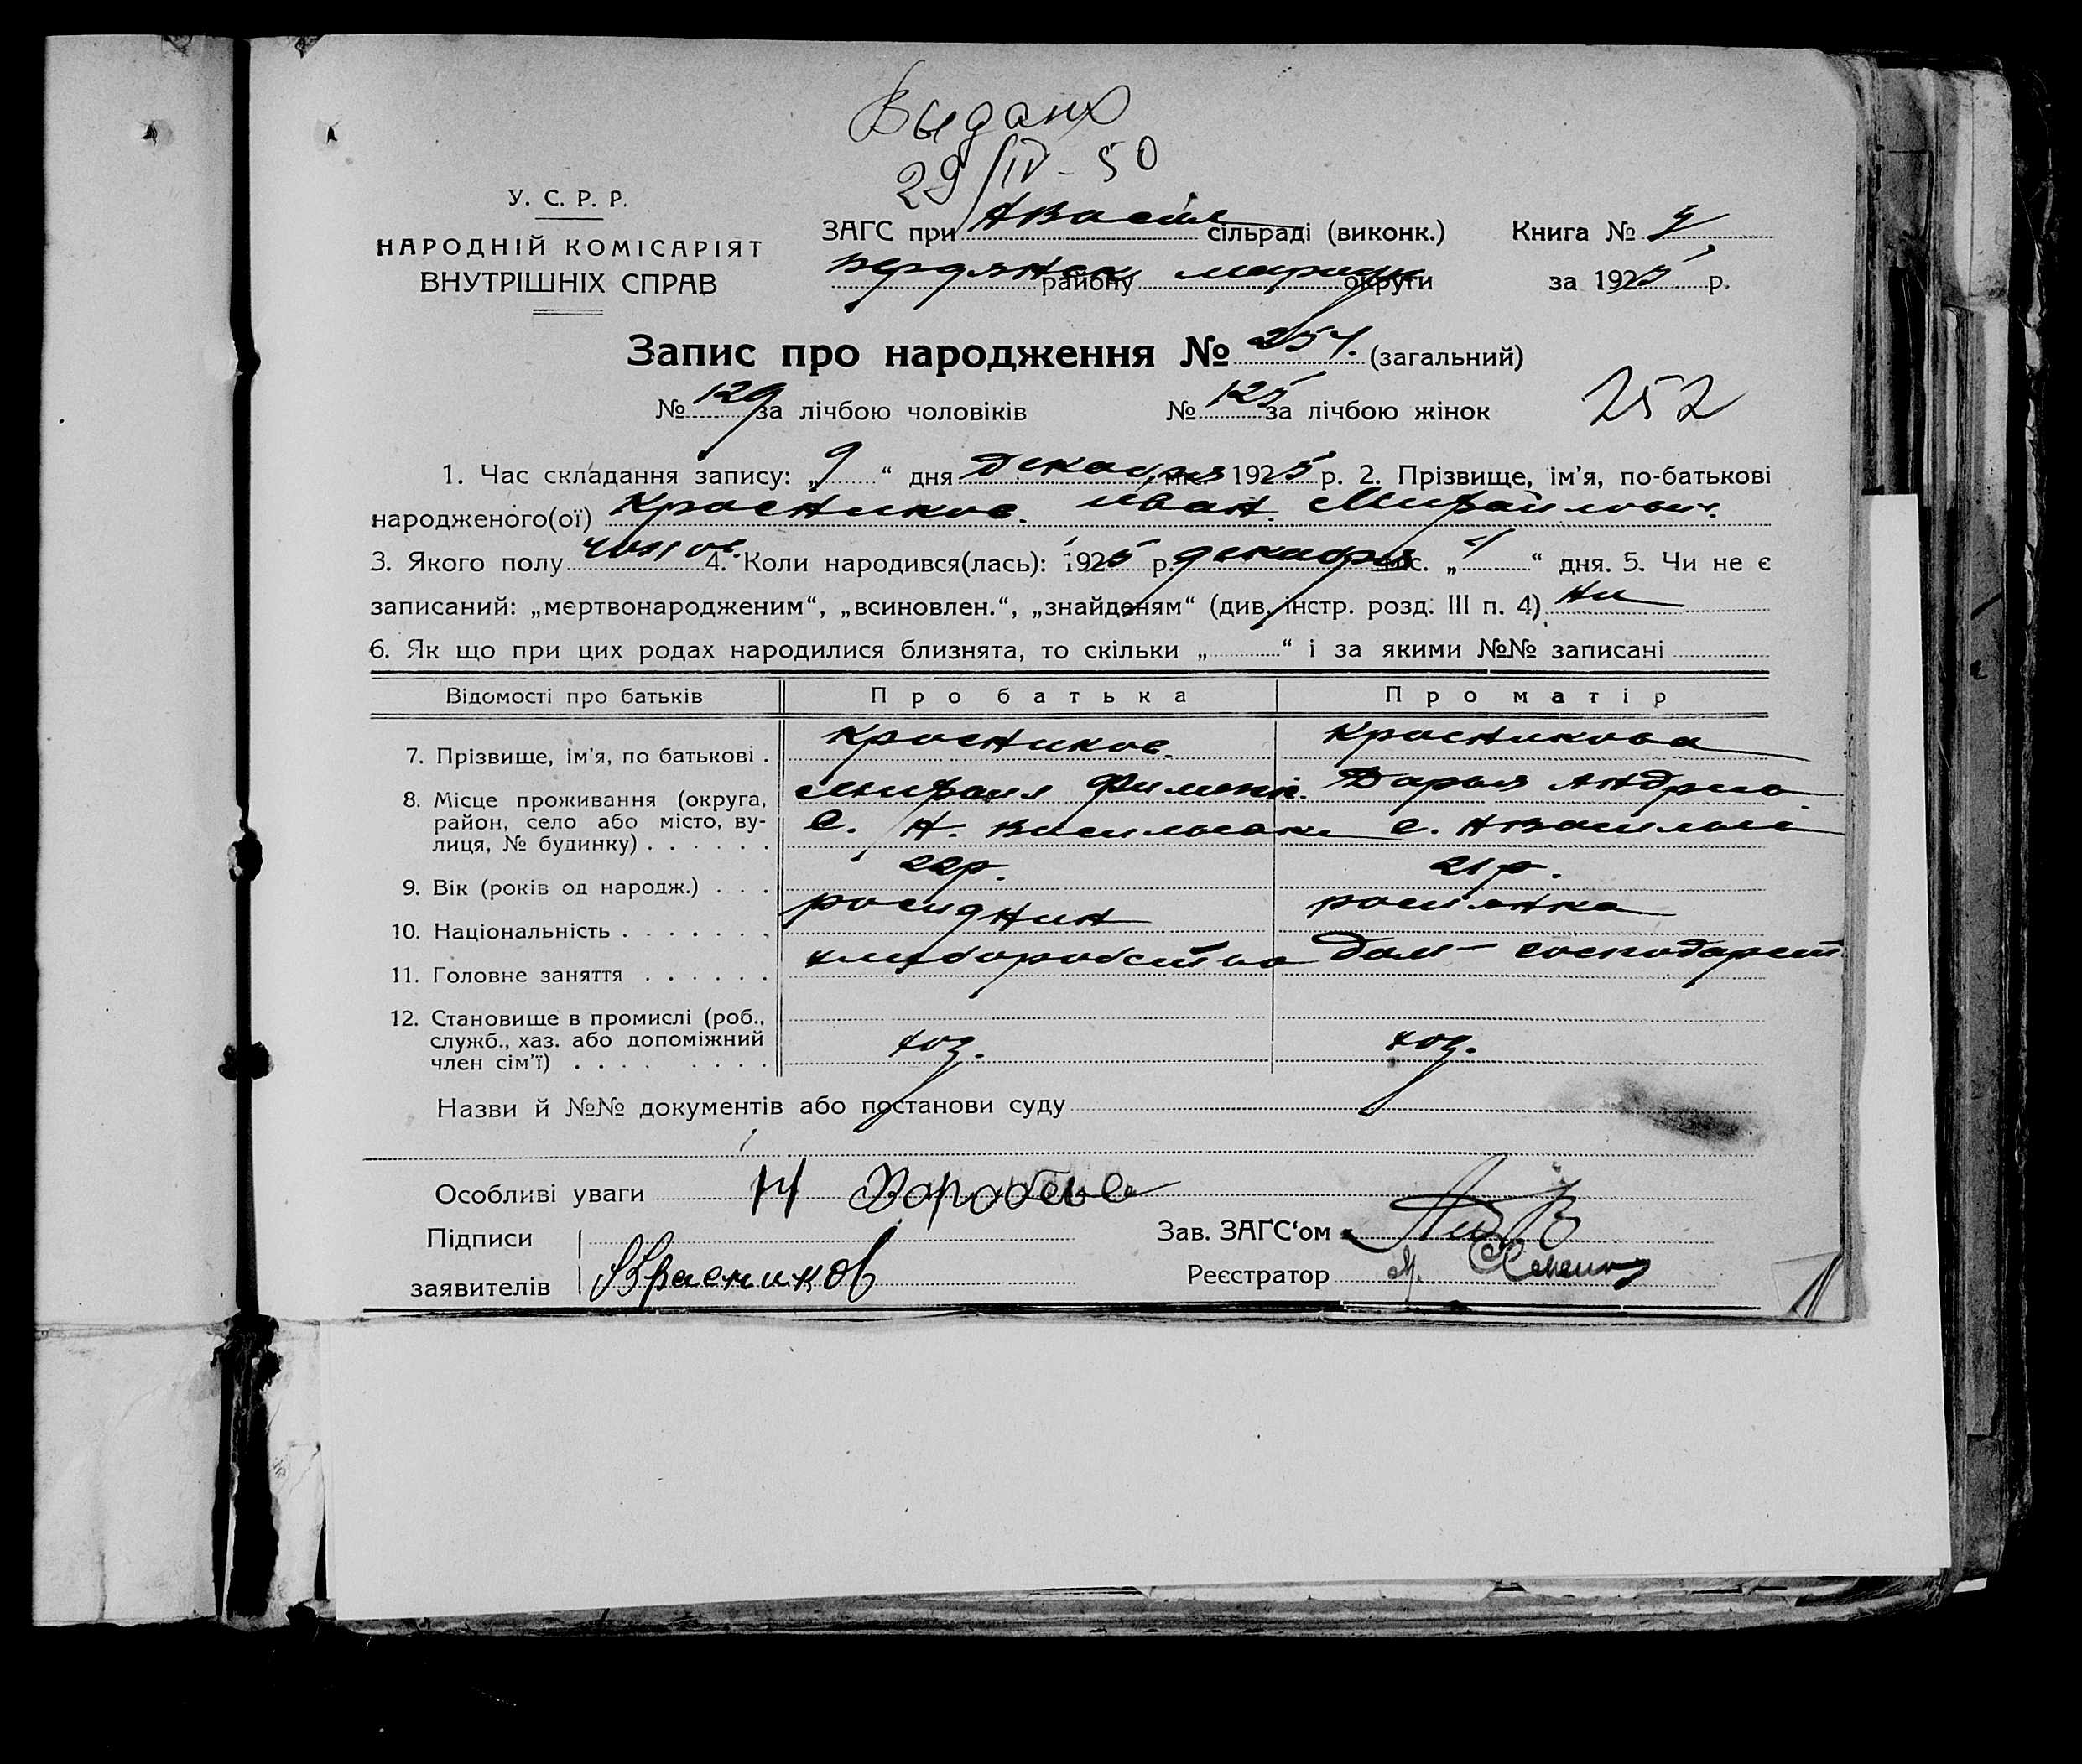 Выдано
29/IV - 50
У. С. Р. Р.
НАРОДНІЙ КОМІСАРІЯТ
ВНУТРІШНІХ СПРАВ
ЗАГС при сільраді (виконк.) Книга №
Бердянск району округи за 1925 р.
Запис про народження № 254. (загальний)
№ 129 за лічбою чоловіків № 125 за лічбою жінок 252
1. Час складання запису: „9“ дня Декабря м-ця 1925 р. 2. Прізвище, ім'я, по-батькові
народженого(ої) Красников. Иван. Михайлович.
3. Якого полу чолов. 4. Коли народився(лась): 1925 р. декабря міс. „ “ дня. 5. Чи не є
записаний: „мертвонародженим“, „всиновлен.“, „знайденям“ (див. інстр. розд. III п. 4) Ни
6. Як що при цих родах народилися близнята, то скільки „ “ і за якими №№ записані
Відомості про батьків Про батька Про матір
7. Прізвище, ім'я, по батькові . Красников. Красникова
Михаил Дарья Андрио
8. Місце проживання (округа,
район, село або місто, ву-
лиця, № будинку) . . . . . . С. Н. Васильевки с. НВасильев
9. Вік (років од народж.) . . . 22р. 21р.
10. Національність . . . . . . . росиянин росиянка
11. Головне заняття . . . . . . хлиборобство дом- господарст
12. Становище в промислі (роб.,
служб., хаз. або допоміжний
член сім'ї) . . . . . . . . хоз. хоз.
Назви й №№ документів або постанови суду
Особливі уваги Н Воробьев
Підписи Зав. ЗАГС'ом
заявителів Красников Реєстратор